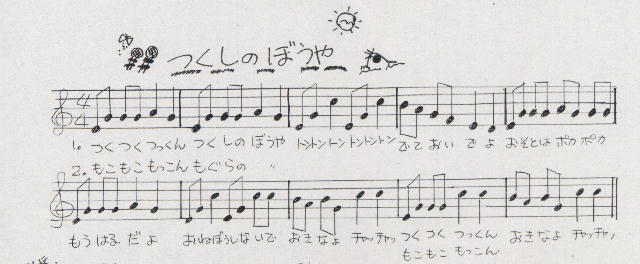 つくしのぼうや
4 4
1. つくつくつっくん つくしのぼうや トントントン トントントン でておいでよ おそとは ポカポカ
2. もこもこもっこん もぐらの 〃
もうはるだよ おねぼうしないで おきなよ チャッチャッ つくつく つっくん おきなよ チャッチャッ
もこもこ もっこん